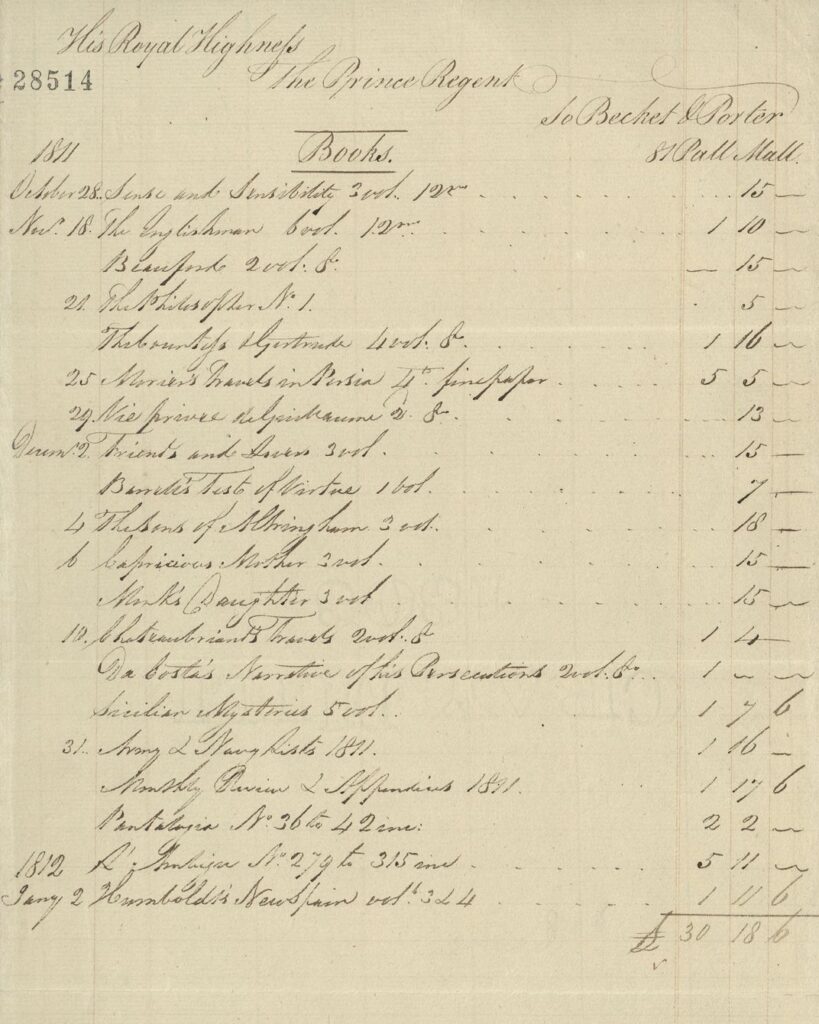 His Royal Highness
28514
The Prince Regent
To Becket & Porter
1811 Books. 81 Pall Mall.
October 28. Sense and Sensibility 3 vol. 12mo 15 —
Novr. 18. The Englishman 6 vol. 12mo 1 10 —
Beauford 2 vol. 8o. — 15 —
21. The Philosopher No. 1. 5 —
The Countess & Gertrude 4 vol. 8o. 1 16 —
25 Morier's Travels in Persia 4to. fine paper 5 5 —
29. Vie privée de 2 8o. 13 —
Decemr. 2. Friends and Lovers 3 vol. 15 —
Barrett's Test of Virtue 1 vol. 7 —
4 The Sons of Altringham 3 vol. 18 —
6 Capricious Mother 3 vol. 15 —
Monk's Daughter 3 vol 15 —
10. Chateaubriant's Travels 2 vol. 8o 1 4 —
Da Costa's Narrative of his Persecutions 2 vol. 8o. 1 — —
Sicilian Mysteries 5 vol. 1 7 6
31. Army & Navy Lists 1811. 1 16 —
Monthly Review & Appendices 1811. 1 17 6
Pantalogia No. 36 to 42 inc: 2 2 —
1812 L'Ambigu No. 279 to 315 inc 5 11 —
Jany 2 Humboldt's New Spain vols. 3 & 4 1 11 6
£ 30 18 6